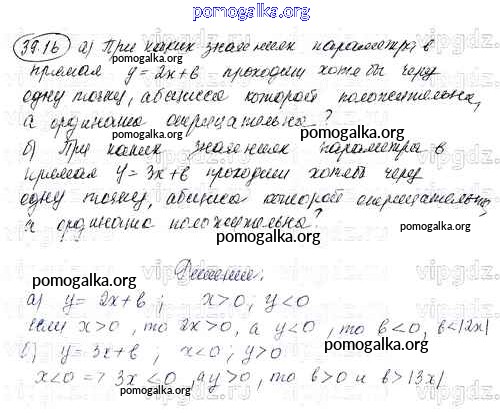 pomogalka.org
39.16 а) При каких значениях параметра в
прямая y = 2x+в проходит хотя бы через
одну точку, абсцисса которой положительна,
а ордината отрицательна?
pomogalka.org
б) При каких значениях параметра в
прямая y = 3x+в проходит хотя бы через
pomogalka.org
одну точку, абсцисса которой отрицательна,
а ордината положительна?
pomogalka.org
pomogalka.org
Решение:
pomogalka.org
а) y = 2x+в; x>0; y<0
если x>0, то 2x>0, а y<0, то в<0, в<|2x|
б) y=3x+в, x<0; y>0
pomogalka.org
x<0 => 3x<0, а y>0, то в>0 и в>|3x|
pomogalka.org